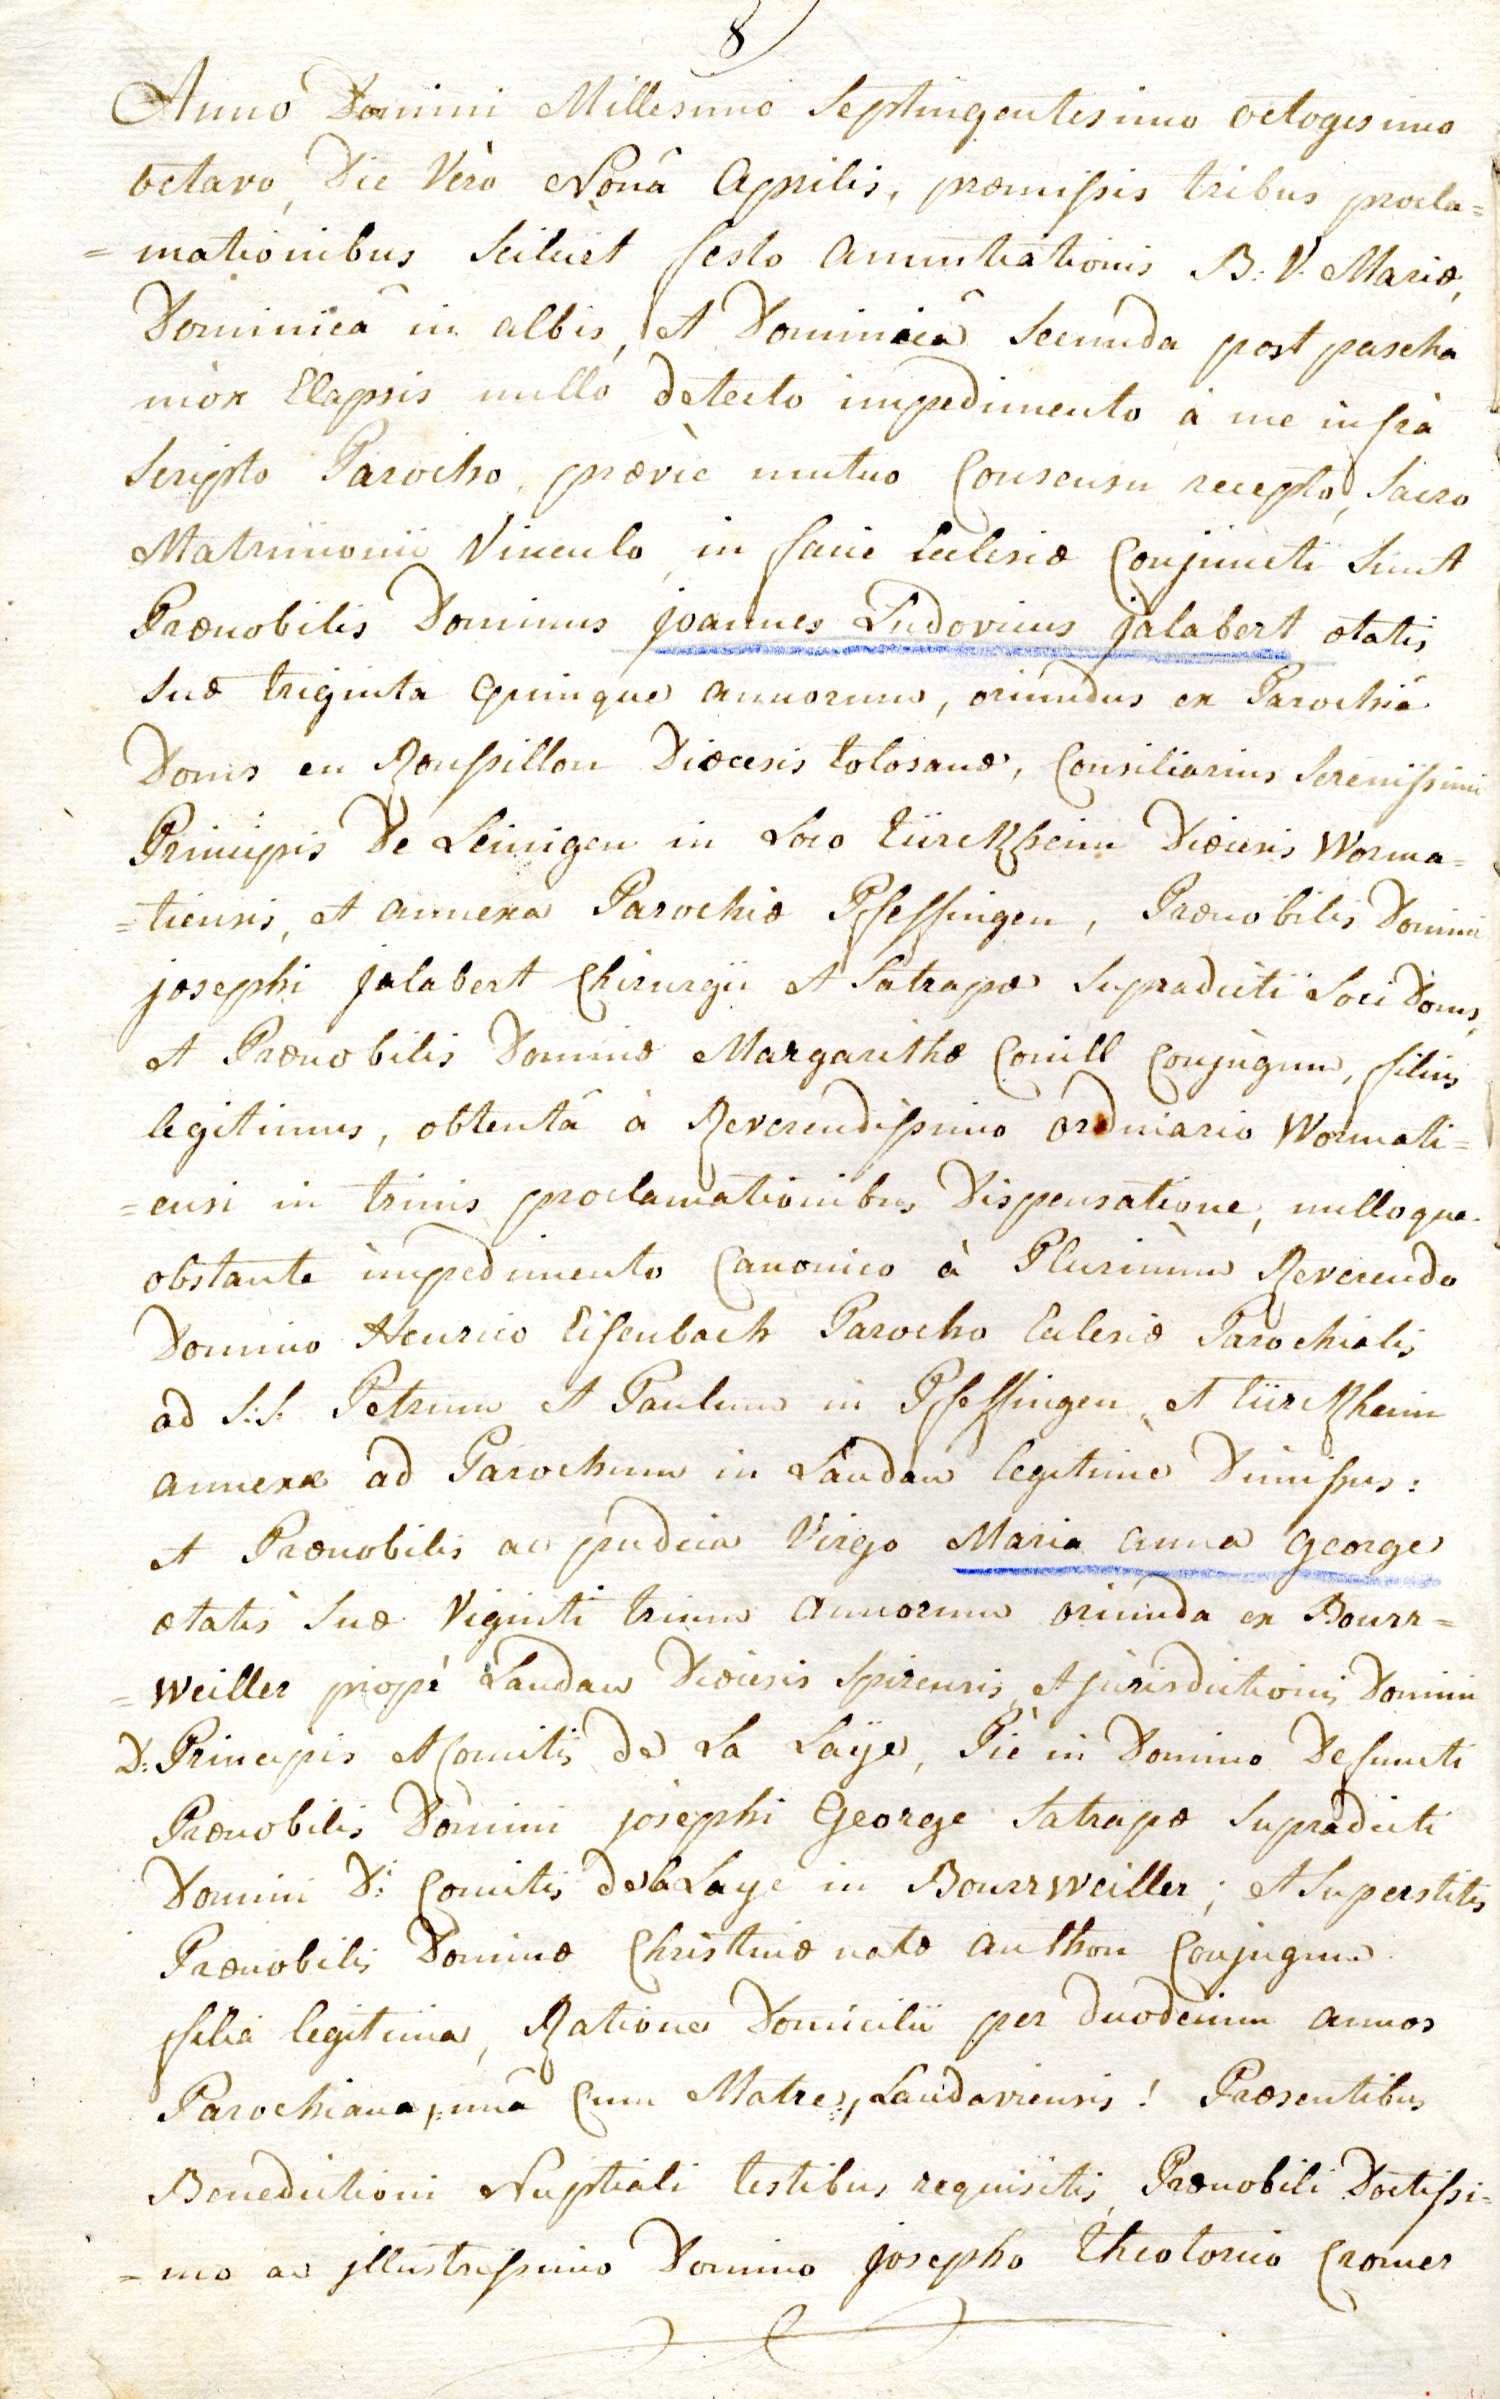 8
Anno Domini Millesimo Septingentesimo octogesimo
octavo, Die Verò Nonâ Aprilis, præmissis tribus procla=
=mationibus Scilicet festo Annuntiationis B: V. Mariæ,
Dominicâ in albis, et Dominicâ Secunda post pascha
mòx Elapsis nullo detecto impedimento à me infrà
Scripto Parocho, prævie mutuo Consensu recepto, Sacro
Matrimonii Vinculo, in facie Eclesiæ Conjuncti Sunt
Prænobilis Dominus joannes Ludovicus jalabert ætatis
Suæ triginta quinque annorum, oriundus ex Parochiâ
Doms en Roussillon Diœcesis tolosanæ, Consiliarius Serenissimi
Principis De Leinigen in Loco türckheim Diœcesis Worma=
=tiensis, et annexa Parochiæ Pfeffingen, Prænobilis Domini
josephi jalabert Chirurgii et Satrapæ Supradicti Loci Doms,
et Prænobilis Dominæ Margarithæ Conill Conjugum, filius
legitimus, obtentâ à Reverendissimo ordinario Wormati=
=ensi in trinis proclamationibus Dispensatione, nulloque
obstante impedimento Canonico à Plurimùm Reverendo
Domino Henrico Eisenbach Parocho Eclesiæ Parochialis
ad S:S: Petrum et Paulum in Pfeffingen et türckheim
annexa ad Parochum in Landau legitimè Dimissus:
et Prænobilis ac pudica Virgo Maria anna george
ætatis Suæ Viginti trium annorum oriunda ex Bourr=
=weiller propè Landau Diœcesis Spirensis, et jurisdictionis Domini
D: Principis et Comitis de La Laÿe, Piè in Domino Defuncti
Prænobilis Domini josephi George Satrapæ Supradicti
Domini D: Comitis de la Laye in Bourrweiller; et Superstitis
Prænobilis Dominæ Christinæ natæ anthon Conjugum
filia legitima, Ratione Domicilii per duodecim annos
Parochiana, unâ Cum Matre, Landaviensis! Præsentibus
Benedictioni Nuptiali testibus requisitis, Prænobili Doctissi=
=mo ac jllustrissimo Domino josepho theotonio Cromer